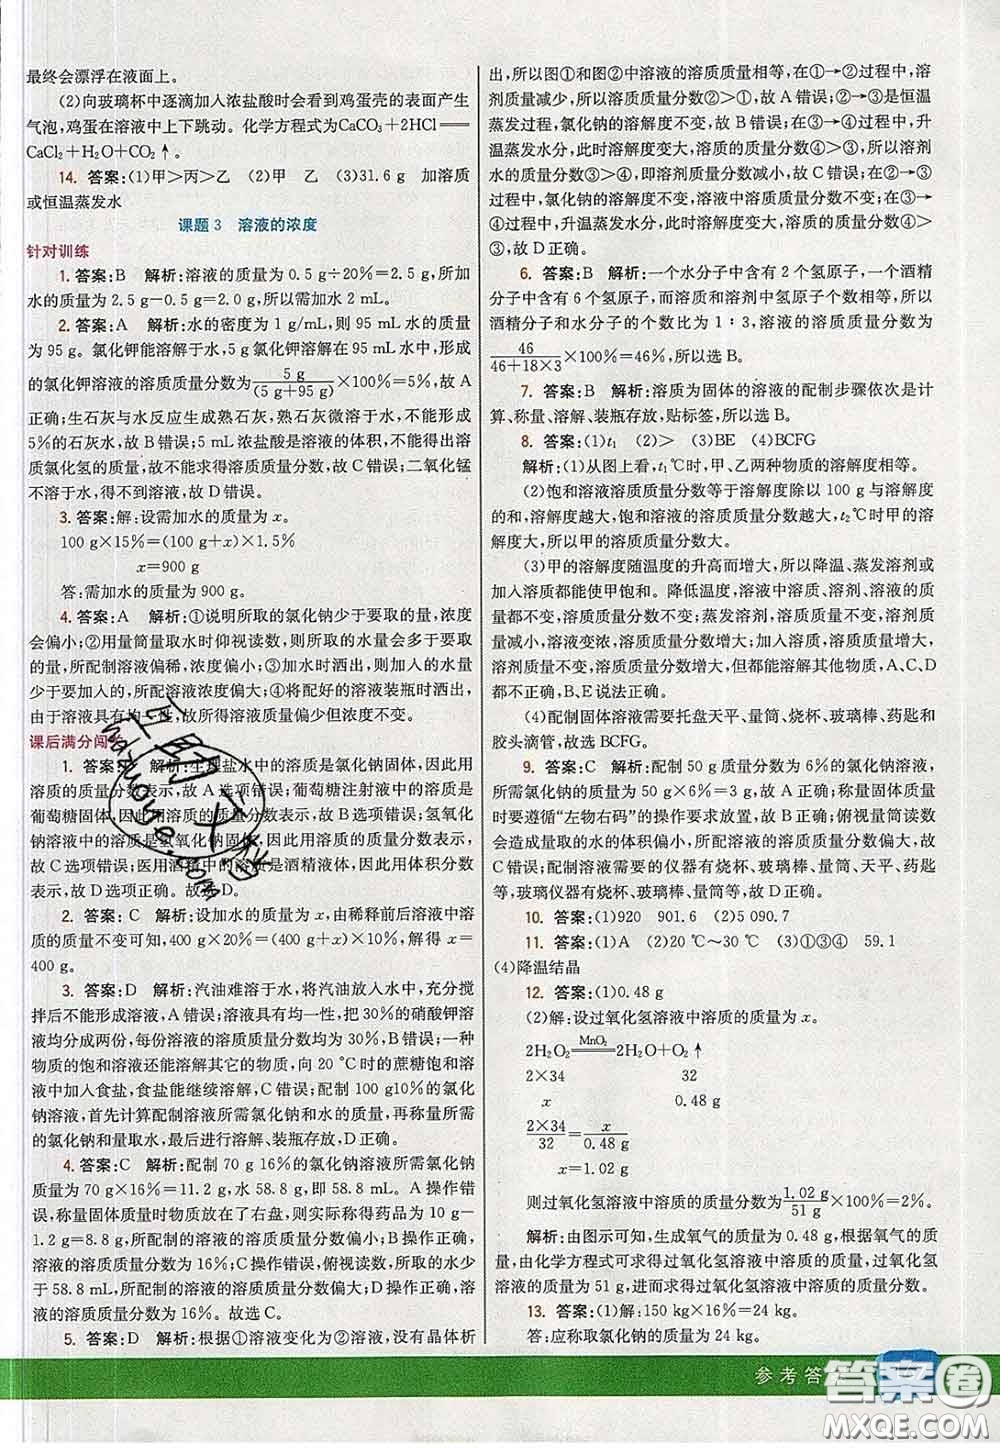 最终会漂浮在液面上。
(2)向玻璃杯中逐滴加入浓盐酸时会看到鸡蛋壳的表面产生
气泡,鸡蛋在溶液中上下跳动。化学方程式为CaCO₃+2HCl══
CaCl₂+H₂O+CO₂↑。
14. 答案:(1)甲>丙>乙 (2)甲 乙 (3)31.6 g 加溶质
或恒温蒸发水
课题 3 溶液的浓度
针对训练
1. 答案:B 解析:溶液的质量为 0.5 g÷20%=2.5 g,所加
水的质量为 2.5 g-0.5 g=2.0 g,所以需加水 2 mL。
2. 答案:A 解析:水的密度为 1 g/mL,则 95 mL 水的质量
为 95 g。氯化钾能溶解于水,5 g 氯化钾溶解在 95 mL 水中,形成
的氯化钾溶液的溶质质量分数为5 g/(5 g+95 g)×100%=5%,故 A
正确;生石灰与水反应生成熟石灰,熟石灰微溶于水,不能形成
5%的石灰水,故 B 错误;5 mL 浓盐酸是溶液的体积,不能得出溶
质氯化氢的质量,故不能求得溶质质量分数,故 C 错误;二氧化锰
不溶于水,得不到溶液,故 D 错误。
3. 答案:解:设需加水的质量为 x。
100 g×15%=(100 g+x)×1.5%
x=900 g
答:需加水的质量为 900 g。
4. 答案:A 解析:①说明所取的氯化钠少于要取的量,浓度
会偏小;②用量筒量取水时仰视读数,则所取的水量会多于要取
的量,所配制溶液偏稀,浓度偏小;③加水时洒出,则加入的水量
少于要加入的,所配溶液浓度偏大;④将配好的溶液装瓶时洒出,
由于溶液具有均一性,故所得溶液质量偏少但浓度不变。
课后满分闯关
1. 答案: 解析:生理盐水中的溶质是氯化钠固体,因此用
溶质的质量分数表示,故 A 选项错误;葡萄糖注射液中的溶质是
葡萄糖固体,因此用溶质的质量分数表示,故 B 选项错误;氢氧化
钠溶液中的溶质是氢氧化钠固体,因此用溶质的质量分数表示,
故 C 选项错误;医用酒精中的溶质是酒精液体,因此用体积分数
表示,故 D 选项正确。故选 D。
2. 答案:C 解析:设加水的质量为 x,由稀释前后溶液中溶
质的质量不变可知,400 g×20%=(400 g+x)×10%,解得 x=
400 g。
3. 答案:D 解析:汽油难溶于水,将汽油放入水中,充分搅
拌后不能形成溶液,A 错误;溶液具有均一性,把 30%的硝酸钾溶
液均分成两份,每份溶液的溶质质量分数均为 30%,B 错误;一种
物质的饱和溶液还能溶解其它的物质,向 20 ℃时的蔗糖饱和溶
液中加入食盐,食盐能继续溶解,C 错误;配制 100 g10%的氯化
钠溶液,首先计算配制溶液所需氯化钠和水的质量,再称量所需
的氯化钠和量取水,最后进行溶解、装瓶存放,D 正确。
4. 答案:C 解析:配制 70 g 16%的氯化钠溶液所需氯化钠
质量为 70 g×16%=11.2 g,水 58.8 g,即 58.8 mL。A 操作错
误,称量固体质量时物质放在了右盘,则实际称得药品为 10 g-
1.2 g=8.8 g,所配制的溶液的溶质质量分数偏小;B 操作正确,
所配制溶液的质量分数为 16%;C 操作错误,俯视读数,所取的水少
于 58.8 mL,配制的溶液的溶质质量分数偏大;D 操作正确,溶
液的溶质质质量分数为 16%。故选 C。
5. 答案:D 解析:根据①溶液变化为②溶液,没有晶体析
出,所以图①和图②中溶液的溶质质量相等,在①→②过程中,溶
剂质量减少,所以溶质质量分数②>①,故 A 错误;②→③是恒温
蒸发过程,氯化钠的溶解度不变,故 B 错误;在③→④过程中,升
温蒸发水分,此时溶解度变大,溶质的质量分数④>③,所以溶剂
水的质量③>④,即溶剂质量分数偏小,故 C 错误;在②→③过程
中,恒温蒸发水分,此时溶解度不变,溶液中溶质质量分数不变;在③
→④过程中,升温蒸发水分,此时溶解度变大,溶质的质量分数④>
③,故 D 正确。
6. 答案:B 解析:一个水分子中含有 2 个氢原子,一个酒精
分子中含有 6 个氢原子,而溶质和溶剂中氢原子个数相等,所以
酒精分子和水分子的个数比为 1∶3,溶液的溶质质量分数为
46/(46+18×3)×100%=46%,所以选 B。
7. 答案:B 解析:溶质为固体的溶液的配制步骤依次是计
算、称量、溶解、装瓶存放,贴标签,所以选 B。
8. 答案:(1)t₁ (2)> (3)BE (4)BCFG
解析:(1)从图上看,t₁℃时,甲、乙两种物质的溶解度相等。
(2)饱和溶液溶质质量分数等于溶解度除以 100 g 与溶解度
的和,溶解度越大,饱和溶液的溶质质量分数越大,t₂℃时甲的溶
解度大,所以甲的溶质质量分数大。
(3)甲的溶解度随温度的升高而增大,所以降温、蒸发溶剂、
加溶质都能使甲饱和。降低温度,溶液中溶质、溶液、溶剂的质
量都不变,溶质质量分数不变;蒸发溶剂,溶质质量不变,溶剂、溶液
质量减小,溶液变浓,溶质质量分数增大;加入溶质,溶质质量增大,
溶剂质量不变,溶质质量分数增大,但都能变为饱和溶液,A、C、D
都不正确,B、E 说法正确。
(4)配制固体溶液需要托盘天平、量筒、烧杯、玻璃棒、药匙和
胶头滴管,故选 BCFG。
9. 答案:C 解析:配制 50 g 质量分数为 6%的氯化钠溶液,
所需氯化钠的质量为 50 g×6%=3 g,故 A 正确;称量固体质量
时要遵循“左物右码”的操作要求放置,故 B 正确;俯视量筒读数
会造成量取的水的体积偏小,所配溶液的溶质质量分数偏大,故
C 错误;配制溶液需要的仪器有烧杯、玻璃棒、量筒、天平、药匙
等,玻璃仪器有烧杯、玻璃棒、量筒等,故 D 正确。
10. 答案:(1)920 901.6 (2)5 090.7
11. 答案:(1)A (2)20 ℃~30 ℃ (3)①③④ 59.1
(4)降温结晶
12. 答案:(1)0.48 g
(2)解:设过氧化氢溶液中溶质的质量为 x。
2H₂O₂ ══MnO₂══ 2H₂O+O₂↑
2×34 32
x 0.48 g
2×34/32=x/0.48 g
x=1.02 g
则过氧化氢溶液中溶质的质量分数为1.02 g/51 g×100%=2%。
解析:由图示可知,生成氧气的质量为 0.48 g,根据氧气的质
量,由化学方程式可求得过氧化氢溶液中溶质的质量,过氧化氢
溶液的质量为 51 g,进而求得过氧化氢溶液中溶质的质量分数。
13. 答案:(1)解:150 kg×16%=24 kg。
答:应称取氯化钠的质量为 24 kg。
参考答案
答案圈
MXQE.COM